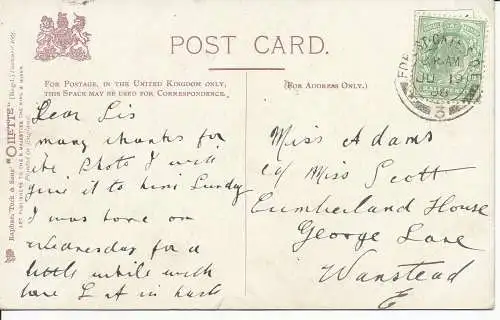 POST CARD.
FOR POSTAGE, IN THE UNITED KINGDOM ONLY,
THIS SPACE MAY BE USED FOR CORRESPONDENCE.
(FOR ADDRESS ONLY.)
Raphael Tuck & Sons' "OILETTE"
ART PUBLISHERS TO
Dear Sis
many thanks for
the Photo I will
give it to him Sunday
I was home on
Wednesday for a
little while with
love L at in hast
Miss Adams
c/o Miss Scott
Cumberland House
George Lane
Wanstead
E